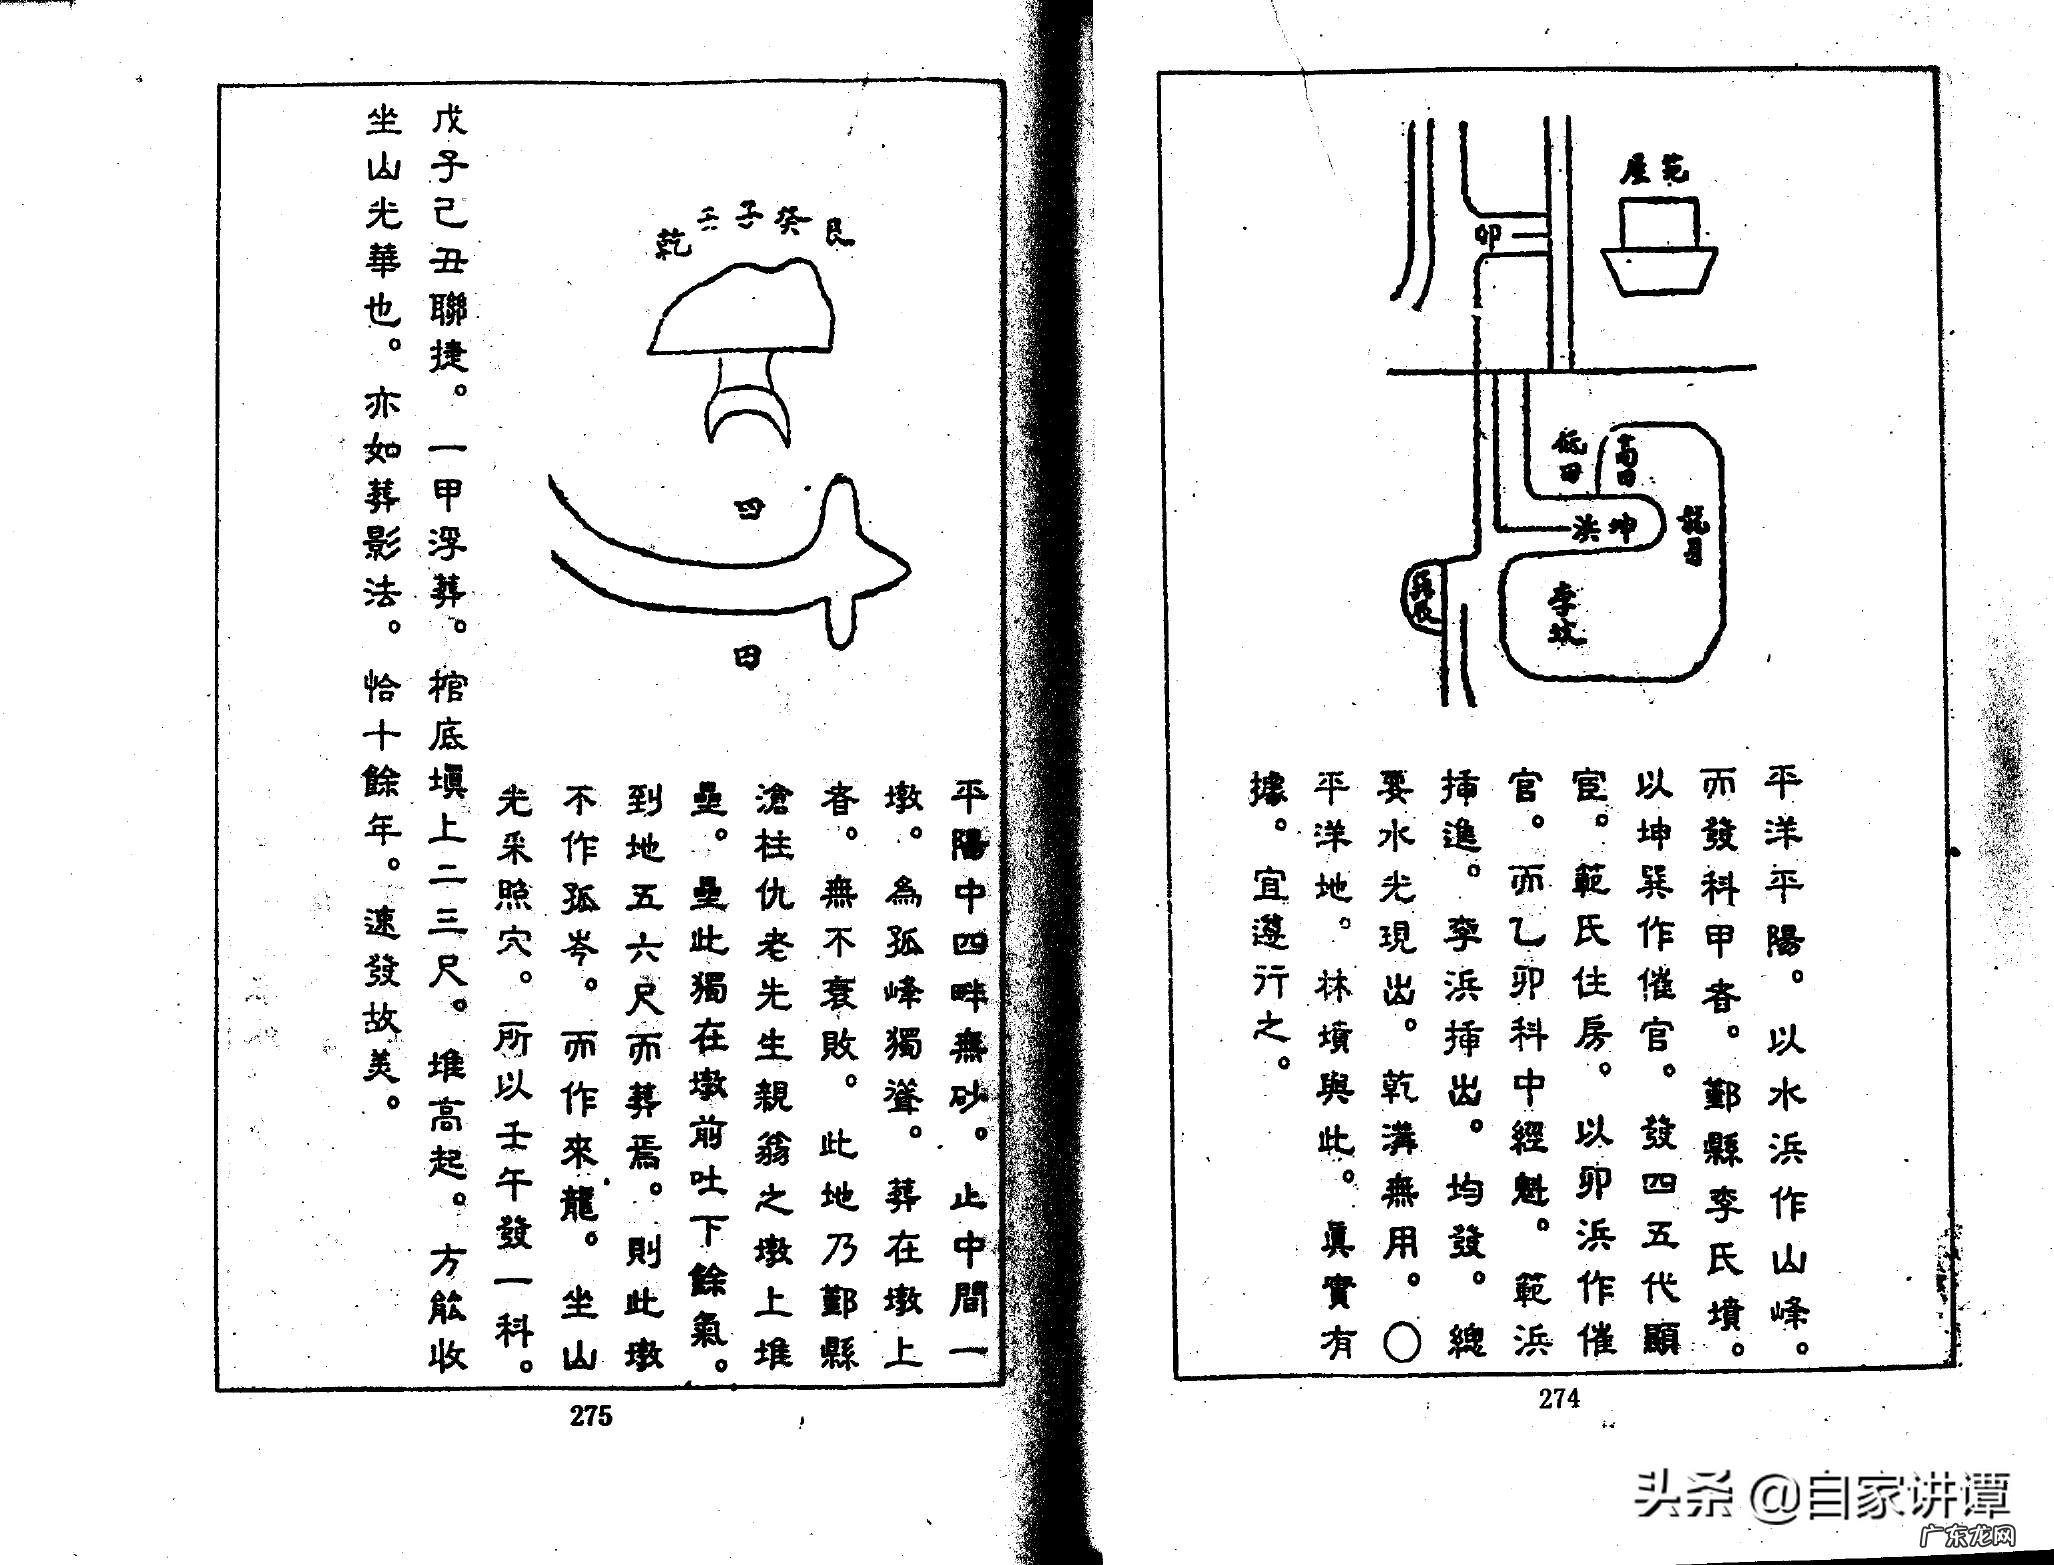 范屋
卯
低田
高田
坤浜
李坟
平洋平陽。以水浜作山峰。
而發科甲者。鄞縣李氏墳。
以坤巽作催官。發四五代顯
宦。範氏住房。以卯浜作催
官。而乙卯科中經魁。範浜
挿進。李浜挿出。均發。總
要水光現出。乾溝無用。○
平洋地。林墳與此。真實有
據。宜遵行之。
274
乾壬子癸艮
田
田
平陽中四畔無砂。止中間一
墩。為孤峰獨聳。葬在墩上
者。無不衰敗。此地乃鄞縣
滄柱仇老先生親翁之墩上堆
壘。壘此獨在墩前吐下餘氣。
到地五六尺而葬焉。則此墩
不作孤岑。而作來龍。坐山
光采照穴。所以壬午發一科。
戊子己丑聯捷。一甲浮葬。棺底塡上二三尺。堆高起。方能收
坐山光華也。亦如葬影法。恰十餘年。速發故美。
275
头条 @自家讲谭
广东龙网